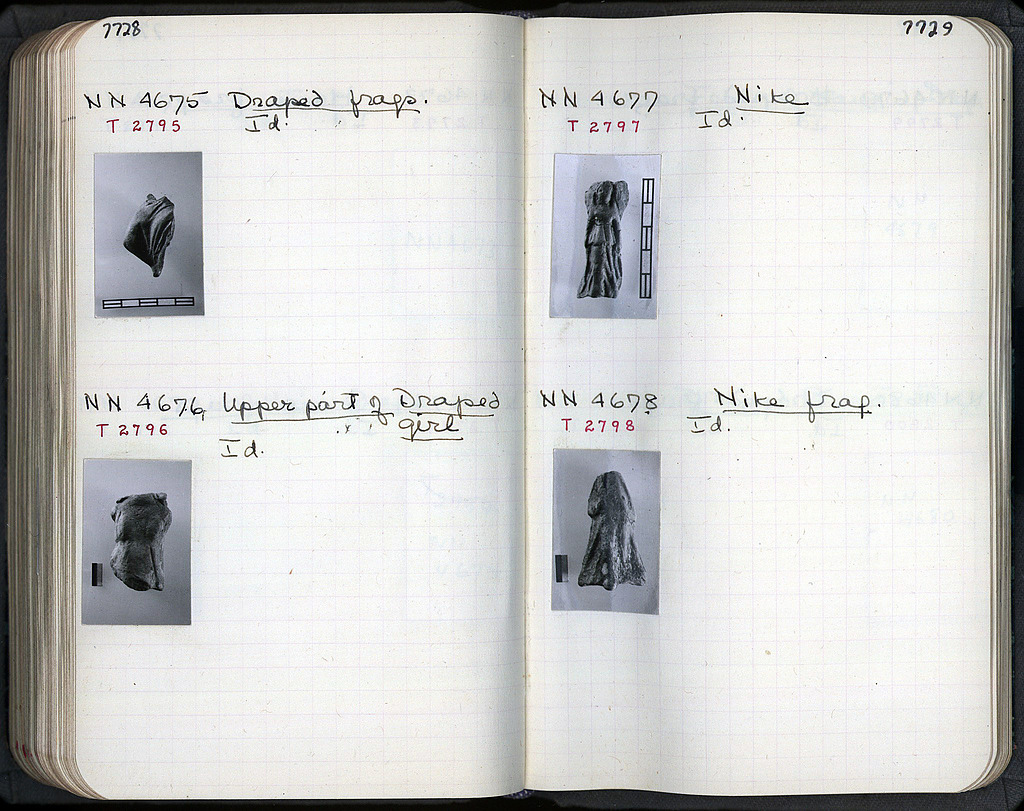 7728
NN 4675 Draped frags.
T 2795 Id.
NN 4676 Upper part of Draped
girl
T 2796
Id.
7729
NN 4677 Nike
T 2797 Id.
NN 4678 Nike frag.
T 2798 Id.